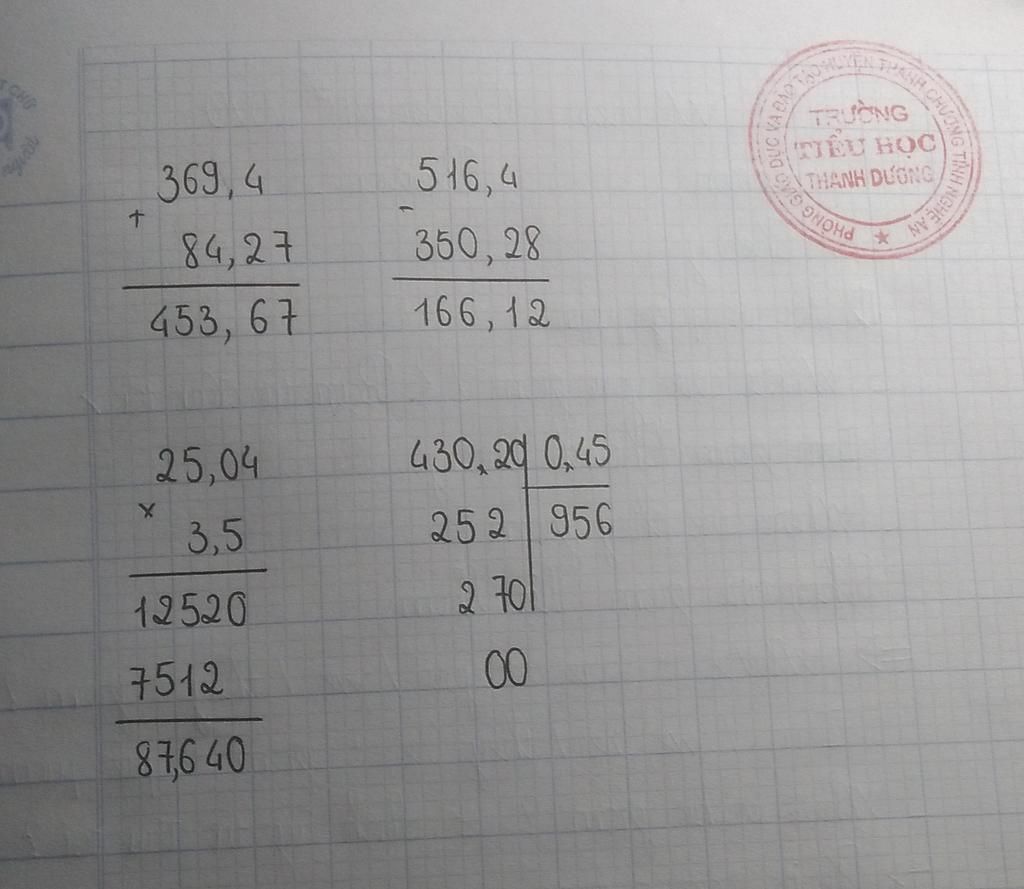 369,4
+
84,27
453,67
516,4
-
350,28
166,12
25,04
x
3,5
12520
7512
87,640
430,20 0,45
252 956
270
00
PHÒNG GIÁO DỤC VÀ ĐÀO TẠO HUYỆN THANH CHƯƠNG TỈNH NGHỆ AN
TRƯỜNG
TIỂU HỌC
THANH DƯƠNG